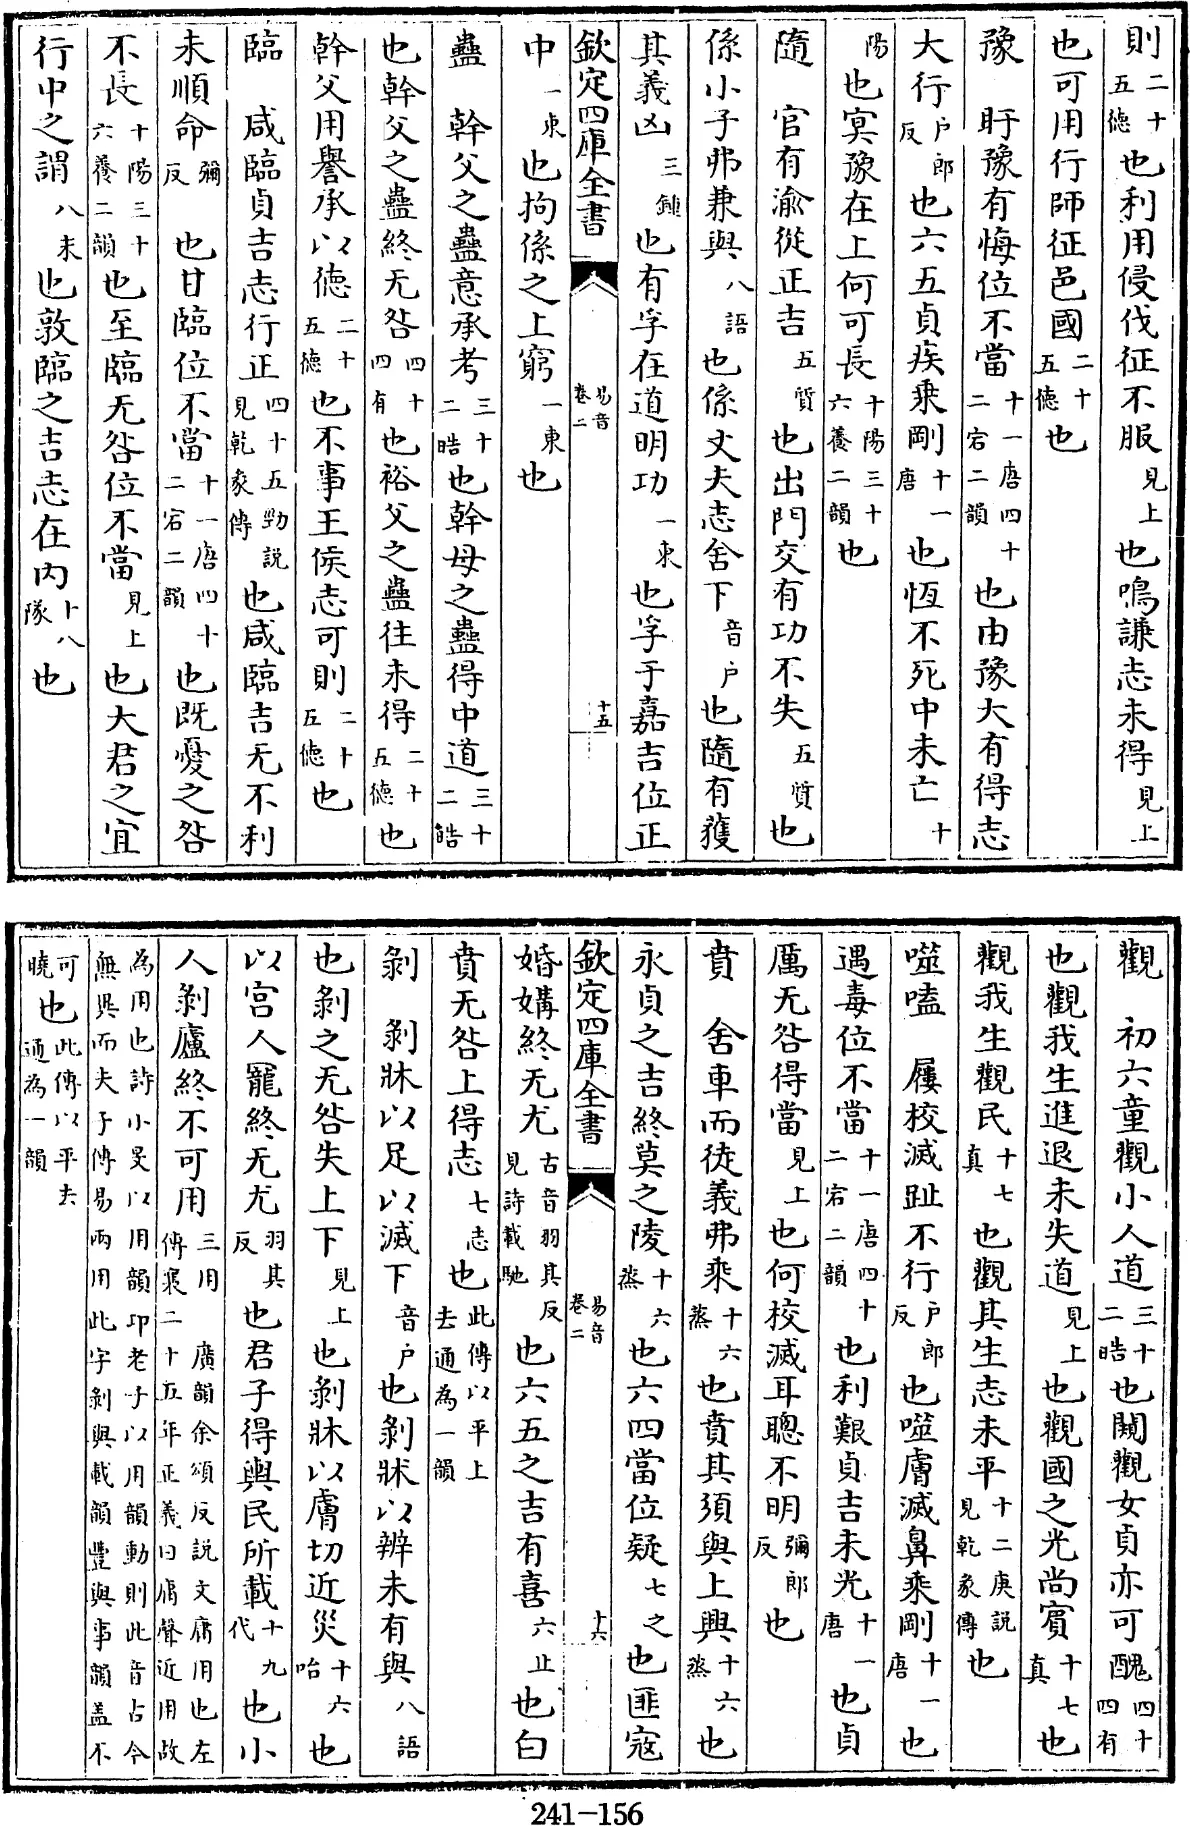 則二十五德也利用侵伐征不服見上也鳴謙志未得見上
也可用行師征邑國二十五德也
豫　盱豫有悔位不當十一唐四十二宕二韻也由豫大有得志
大行户郎反也六五貞疾乗剛十一唐也恆不死中未亡十
陽也冥豫在上何可長十陽三十六養二韻也
隨　官有渝從正吉五質也出門交有功不失五質也
係小子弗兼與八語也係丈夫志舍下音户也隨有獲
其義凶三鍾也有孚在道明功一東也孚于嘉吉位正
欽定四庫全書　易音卷二　十五
中一東也拘係之上窮一東也
蠱　幹父之蠱意承考三十二晧也幹母之蠱得中道三十二皓
也幹父之蠱終无咎四十四有也裕父之蠱往未得二十五德也
幹父用譽承以德二十五德也不事王侯志可則二十五德也
臨　咸臨貞吉志行正四十五勁説見乾彖傳也咸臨吉无不利
未順命彌反也甘臨位不當十一唐四十二宕二韻也既憂之咎
不長十陽三十六養二韻也至臨无咎位不當見上也大君之宜
行中之謂八未也敦臨之吉志在内十八隊也
觀　初六童觀小人道三十二晧也闚觀女貞亦可醜四十四有
也觀我生進退未失道見上也觀國之光尚賓十七真也
觀我生觀民十七真也觀其生志未平十二庚説見乾彖傳也
噬嗑　屨校滅趾不行户郎反也噬膚滅鼻乗剛十一唐也
遇毒位不當十一唐四十二宕二韻也利艱貞吉未光十一唐也貞
厲无咎得當見上也何校滅耳聰不明彌郎反也
賁　舍車而徒義弗乗十六蒸也賁其須與上興十六蒸也
永貞之吉終莫之陵十六蒸也六四當位疑七之也匪寇
欽定四庫全書　易音卷二　十六
婚媾終无尤古音羽其反見詩載馳也六五之吉有喜六止也白
賁无咎上得志七志也此傳以平上去通為一韻
剝　剝牀以足以滅下音户也剝牀以辨未有與八語
也剝之无咎失上下見上也剝牀以膚切近災十六咍也
以宫人寵終无尤羽其反也君子得輿民所載十九代也小
人剝廬終不可用三用　廣韻余頌反説文庸用也左傳襄二十五年正義曰庸聲近用故
為用也詩小旻以用韻卭老子以用韻動則此音占今無異而夫子傳易兩用此字剝與載韻豐與事韻蓋不
可曉也此傳以平去通為一韻
241-156